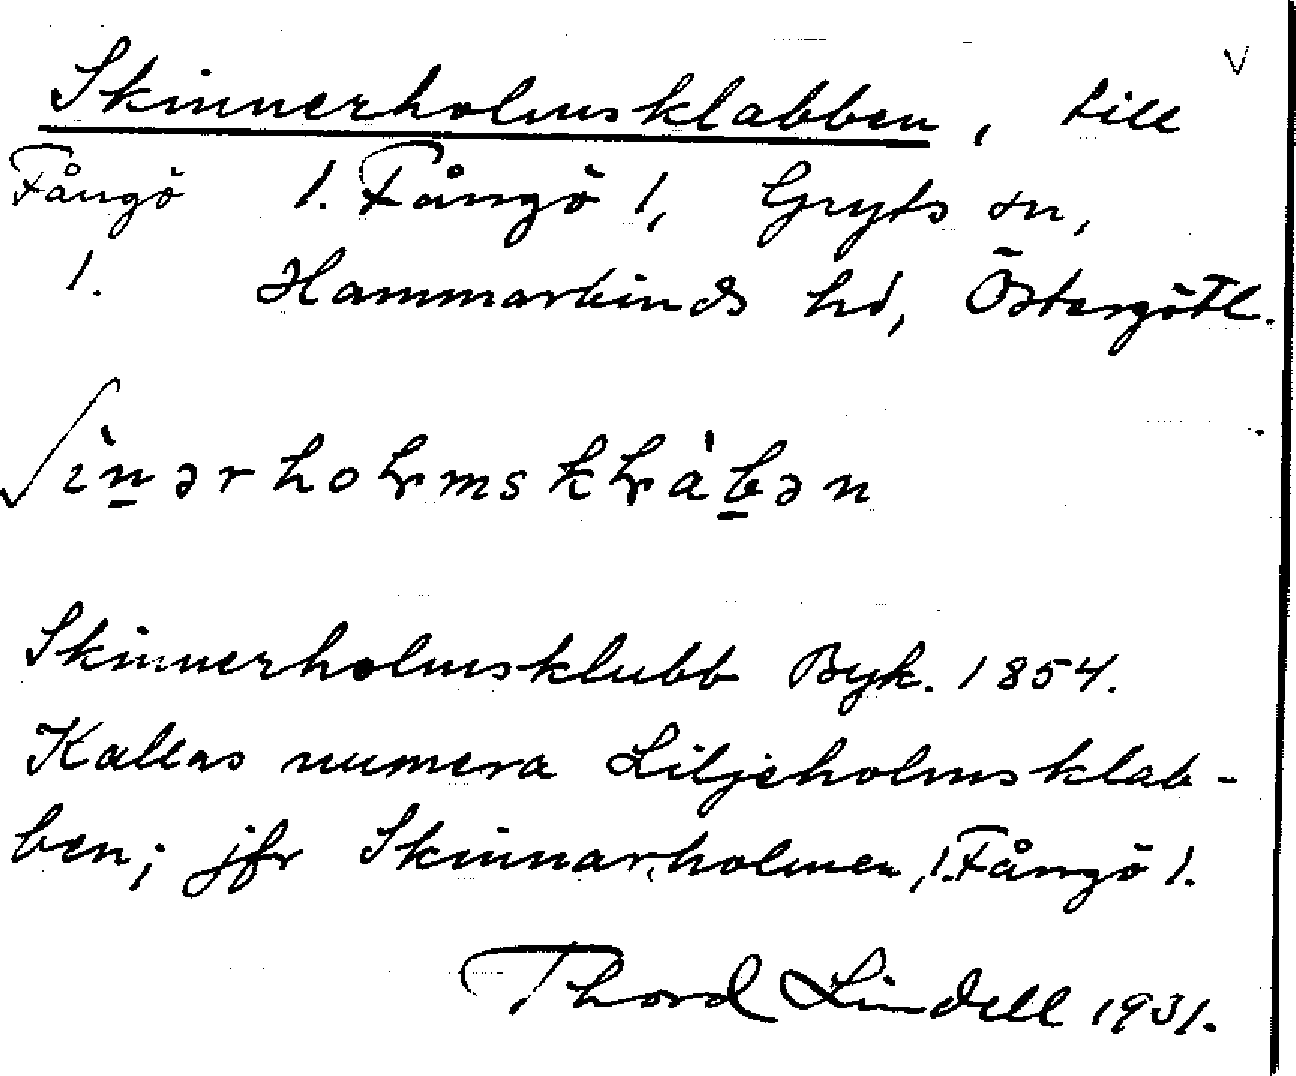 Skinnerholmsklabben, till V
Fångö 1. Fångö 1, Gryts sn,
1. Hammarkinds hd, Östergötl.
ʃìn̲ərholmsklàb̲ən
Skinnerholmsklubb Byk. 1854.
Kallas numera Liljeholmsklab-
ben; jfr Skinnarholmen, 1. Fångö 1.
Thord Lindell 1931.